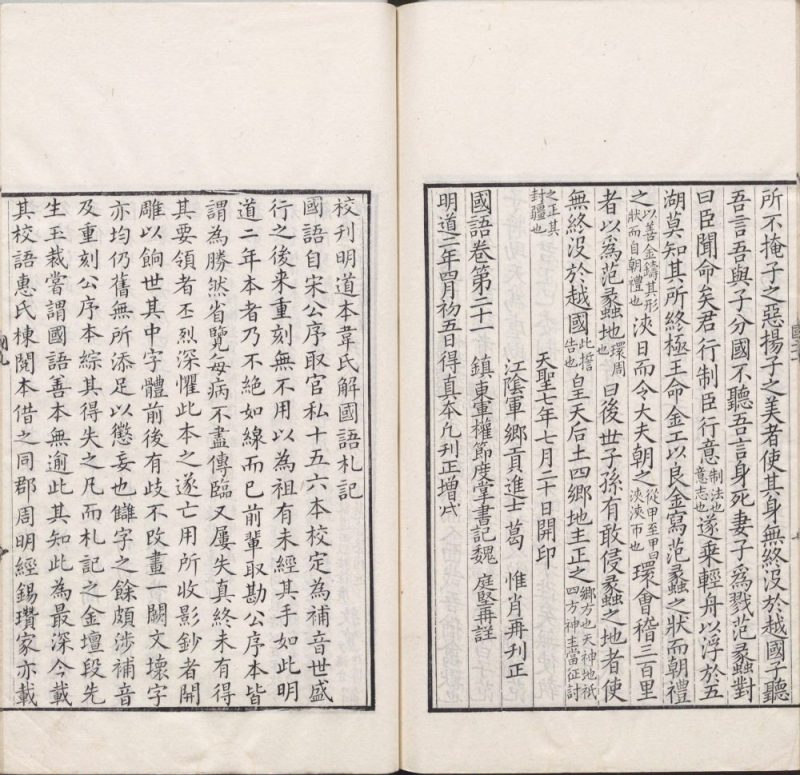 所不掩子之惡揚子之美者使其身無終没於越國子聽
吾言吾與子分國不聽吾言身死妻子爲戮范蠡對
曰臣聞命矣君行制臣行意制法也意志也遂乗輕舟以浮於五
湖莫知其所終極王命金工以良金寫范蠡之狀而朝禮
之以善金鑄其形狀而自朝禮也浹日而令大夫朝之從甲至甲曰浹浹帀也環會稽三百里
者以爲范蠡地環周也曰後世子孫有敢侵蠡之地者使
無終没於越國此誓告也皇天后土四鄉地主正之鄉方也天神地祇四方神主當征討
之正其封疆也
天聖七年七月二十日開印
江陰軍鄉貢進士葛　惟肖再刊正
鎮東軍權節度掌書記魏　庭堅再詳
國語卷第二十一
明道二年四月初五日得真本凡刊正增减
校刊明道本韋氏解國語札記
國語自宋公序取官私十五六本校定為補音世盛
行之後来重刻無不用以為祖有未經其手如此明
道二年本者乃不絶如線而已前輩取勘公序本皆
謂為勝然省覽每病不盡傳臨又屢失真終未有得
其要領者丕烈深懼此本之遂亡用所收影鈔者開
雕以餉世其中字體前後有歧不改畫一闕文壞字
亦均仍舊無所添足以懲妄也讎字之餘頗涉補音
及重刻公序本綜其得失之凡而札記之金壇段先
生玉裁嘗謂國語善本無逾此其知此為最深今載
其校語惠氏棟閱本借之同郡周明經錫瓚家亦載